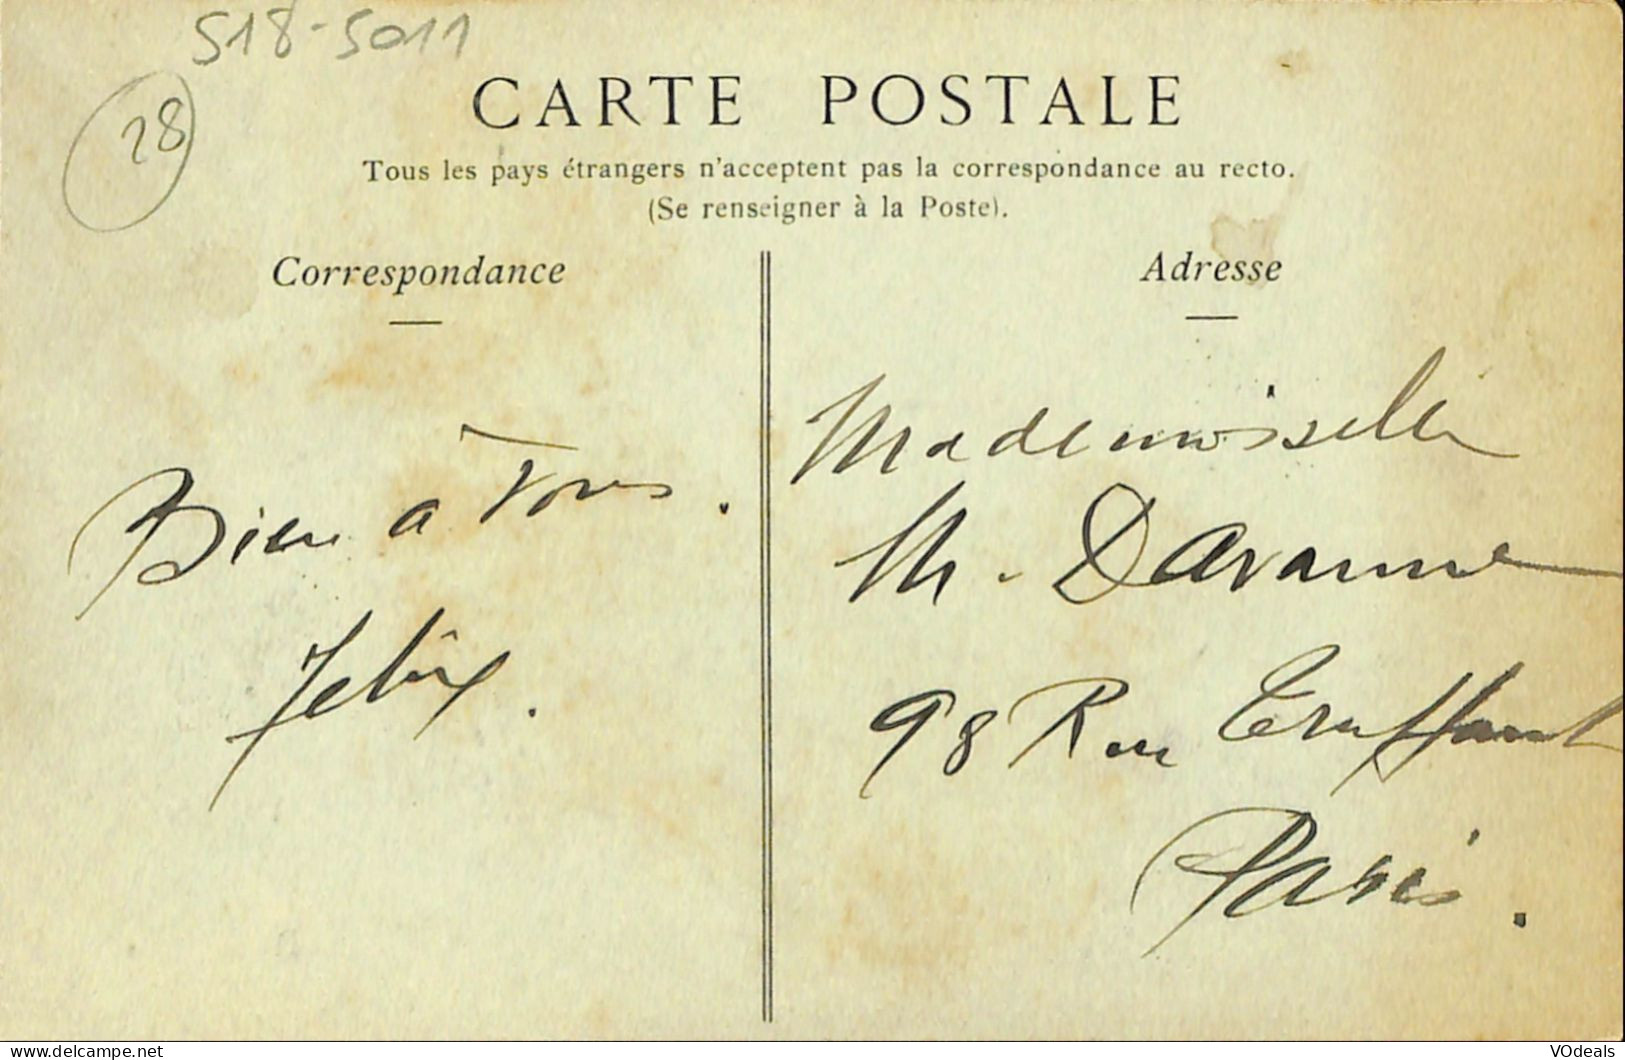 518-5011
28
CARTE POSTALE
Tous les pays étrangers n'acceptent pas la correspondance au recto.
(Se renseigner à la Poste).
Correspondance
Adresse
Bien à vous.
Felix.
Mademoiselle
M. Davanne
98 Rue Truffaut
Paris.
www.delcampe.net
VOdeals